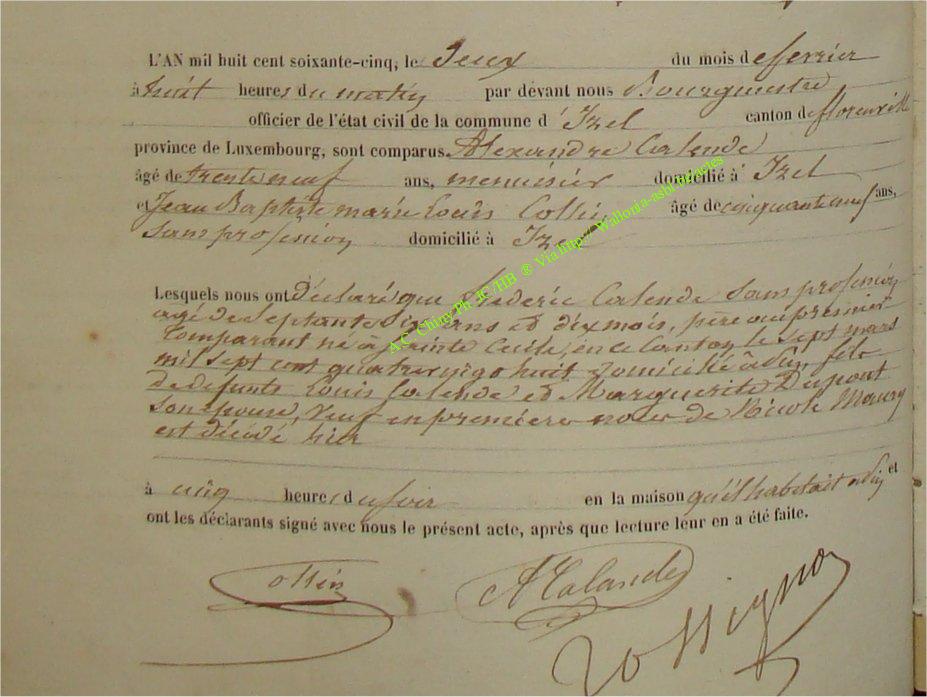 L'AN mil huit cent soixante-cinq, le Deux du mois de fevrier
à huit heures du matin par dévant nous Bourgmestre
officier de l'état civil de la commune d' Izel canton de florenville
province de Luxembourg, sont comparus. Alexandre Calende
âgé de trente neuf ans, menuisier domicilié à Izel
et Jean Baptiste marie Louis Collin âgé de cinquante neuf ans,
Sans profession domicilié à Izel
Lesquels nous ont Déclaré que frederic Calende Sans profession
agé de septante Six ans et dix mois, père au premier
Comparant né à Sainte Cecile, en ce Canton, le sept mars
mil sept cent quatre vingt huit domicilié à fils
de defunts Louis Calende et Marguerite Dupont
son epouse, Veuf en premieres noces de Nicole Maury
est décédé hier
à cinq heures du soir en la maison qu'il habitait et
ont les déclarants signé avec nous le présent acte, après que lecture leur en a été faite.
Collin ACalande Rossignon
A.C. Chiny Ph JC/HB ® Via http:// Wallonia-asbl